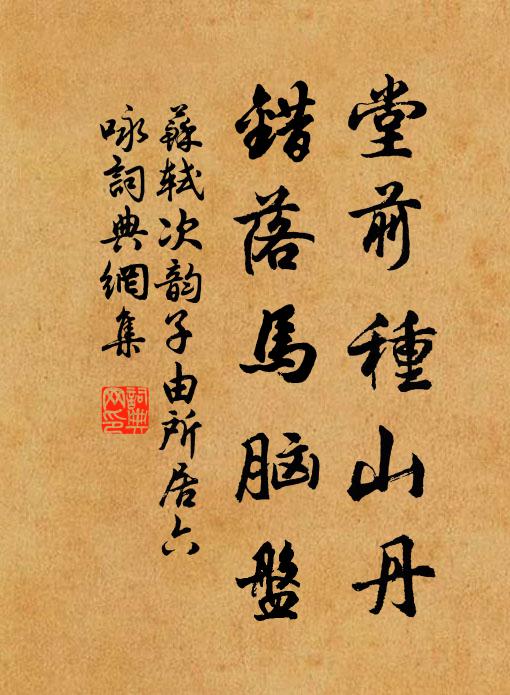 堂前種山丹
錯落馬脑盤
蘇軾次韵子由所居六
咏詞典網集
詞典网印